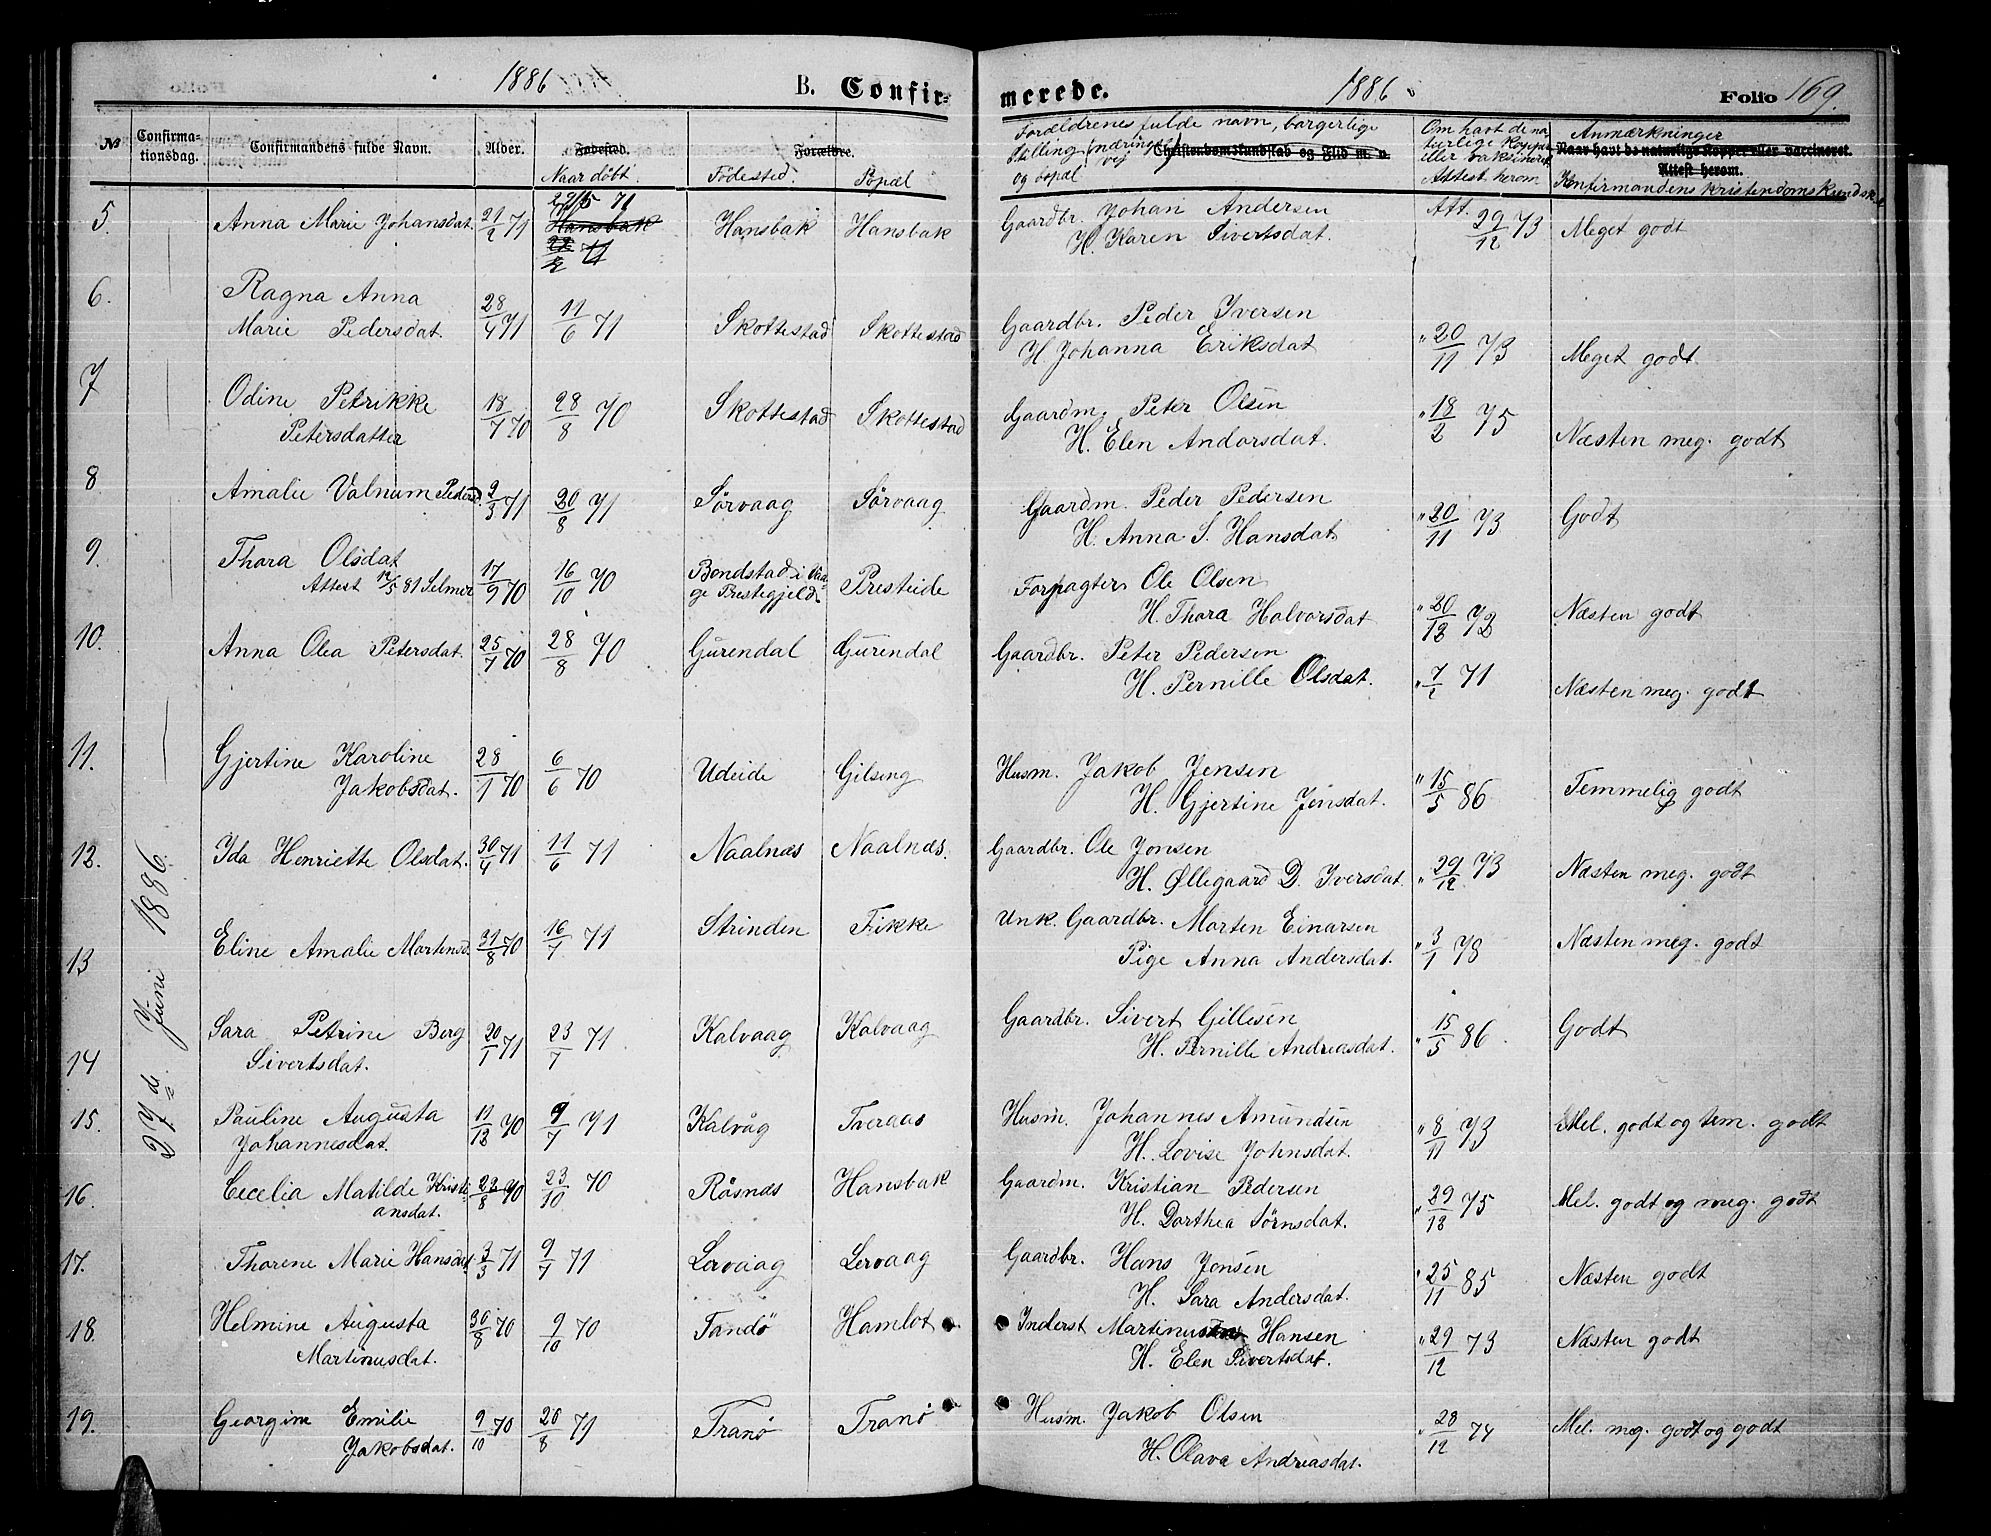 1886 B. Confir-
№ Confirma-tionsdag. Confirmandens fulde Navn. Alder. Fødested. Forældre.
Naar döbt. Födested. Opæl
5. Anna Marie Johansdat. 21/2 71 29/5 71 Hansbak Hansbak
Hansbak
6. Ragna Anna
Marie Pedersdat. 28/4 71 11/6 71 Skottestad Skottestad
7 Odine Petrikke 18/7 70 28/8 70 Skottestad Skottestad
Petersdatter
8. Amalie Valnum Pedersd. 2/3 71 20/8 71 Sørvaag Sørvaag
9. Thora Olsdat 17/9 70 16/10 70 Bondstad i Vaa- Presteide
Attest 12/5 81 Selmer ge Prestegjeld
10. Anna Olea Petersdat. 25/7 70 28/8 70 Gurendal Gurendal
11. Gjertine Karoline 28/1 70 6/6 70 Udeide Gilseng
Jakobsdat.
12. Ida Henriette Olsdat. 30/4 71 11/6 71 Naalnæs Naalnæs.
13 Eline Amalie Martensd. 31/8 70 16/7 71 Strinden Fikke
14 Sara Petrine Berg 20/1 71 23/7 71 Kalvaag Kalvaag
Sivertsdat.
15. Pauline Augusta 11/12 70 9/7 71 Kalvåg Tveraas
Johannesdat.
16. Cecelia Matilde Kristi- 22/8 70 23/10 70 Råsnæs Hansbak
ansdat.
17. Thorene Marie Hansdat. 3/3 71 9/7 71 Lervaag Lervaag
18. Helmine Augusta 30/8 70 9/10 70 Tandö Hamlot
Martinusdat.
19. Georgine Emilie 9/10 70 20/8 71 Tranö Tranö
Jakobsdat.
27de Juni 1886.
merede. 1886 Folio 169.
Forældrenes fulde navn, borgerlige
Stilling
og opæl
Christendomskundskab og Flid m. v.
Om havt de na
turlige Kopper
eller vaksineret
Attest herom
Anmærkninger
Naar havt de naturlige Kopper eller vaccineret.
Attest herom.
Konfirmandens kristendomskundsk
Gaardbr. Johan Andersen Att. 29/12 73 Meget godt
H. Karen Sivertsdat.
Gaardbr. Peder Iversen " 20/11 73 Meget godt.
H. Johanna Eriksdat
Gaardm. Peter Olsen " 18/2 75 Næsten meg. godt
H. Elen Andorsdat.
Gaardm. Peder Pedersen " 20/11 73 Godt
H. Anna S. Hansdat
Forpagter Ole Olsen " 20/12 72 Næsten godt
H. Thora Halvorsdat
Gaardbr. Peter Pedersen " 7/2 71 Næsten meg. godt
H. Pernille Olsdat.
Husm. Jakob Jensen " 15/5 86 Temmelig godt
H. Gjertine Jensdat.
Gaardbr. Ole Jonsen " 29/12 73 Næsten meg. godt
H. Øllegaard D. Iversdat.
Unk. Gaardbr. Morten Einarsen " 3/1 78 Næsten meg. godt
Pige Anna Andersdat.
Gaardbr. Sivert Gillesen " 15/5 86 Godt
H. Pernille Andreasdat.
Husm. Johannes Amundsen " 8/11 73 Mel. godt og tem. godt
H. Lovise Johnsdat.
Gaardm. Kristian Pedersen " 29/12 75 Mel. godt og meg. godt
H. Dorthea Sørnsdat.
Gaardbr. Hans Jonsen " 25/11 85 Næsten godt
H. Sara Andersdat.
Inderst Martinus Hansen " 29/12 73 Næsten godt
H. Elen Sivertsdat.
Husm. Jakob Olsen " 28/12 74 Mel. meg. godt og godt
H. Olava Andreasdat.